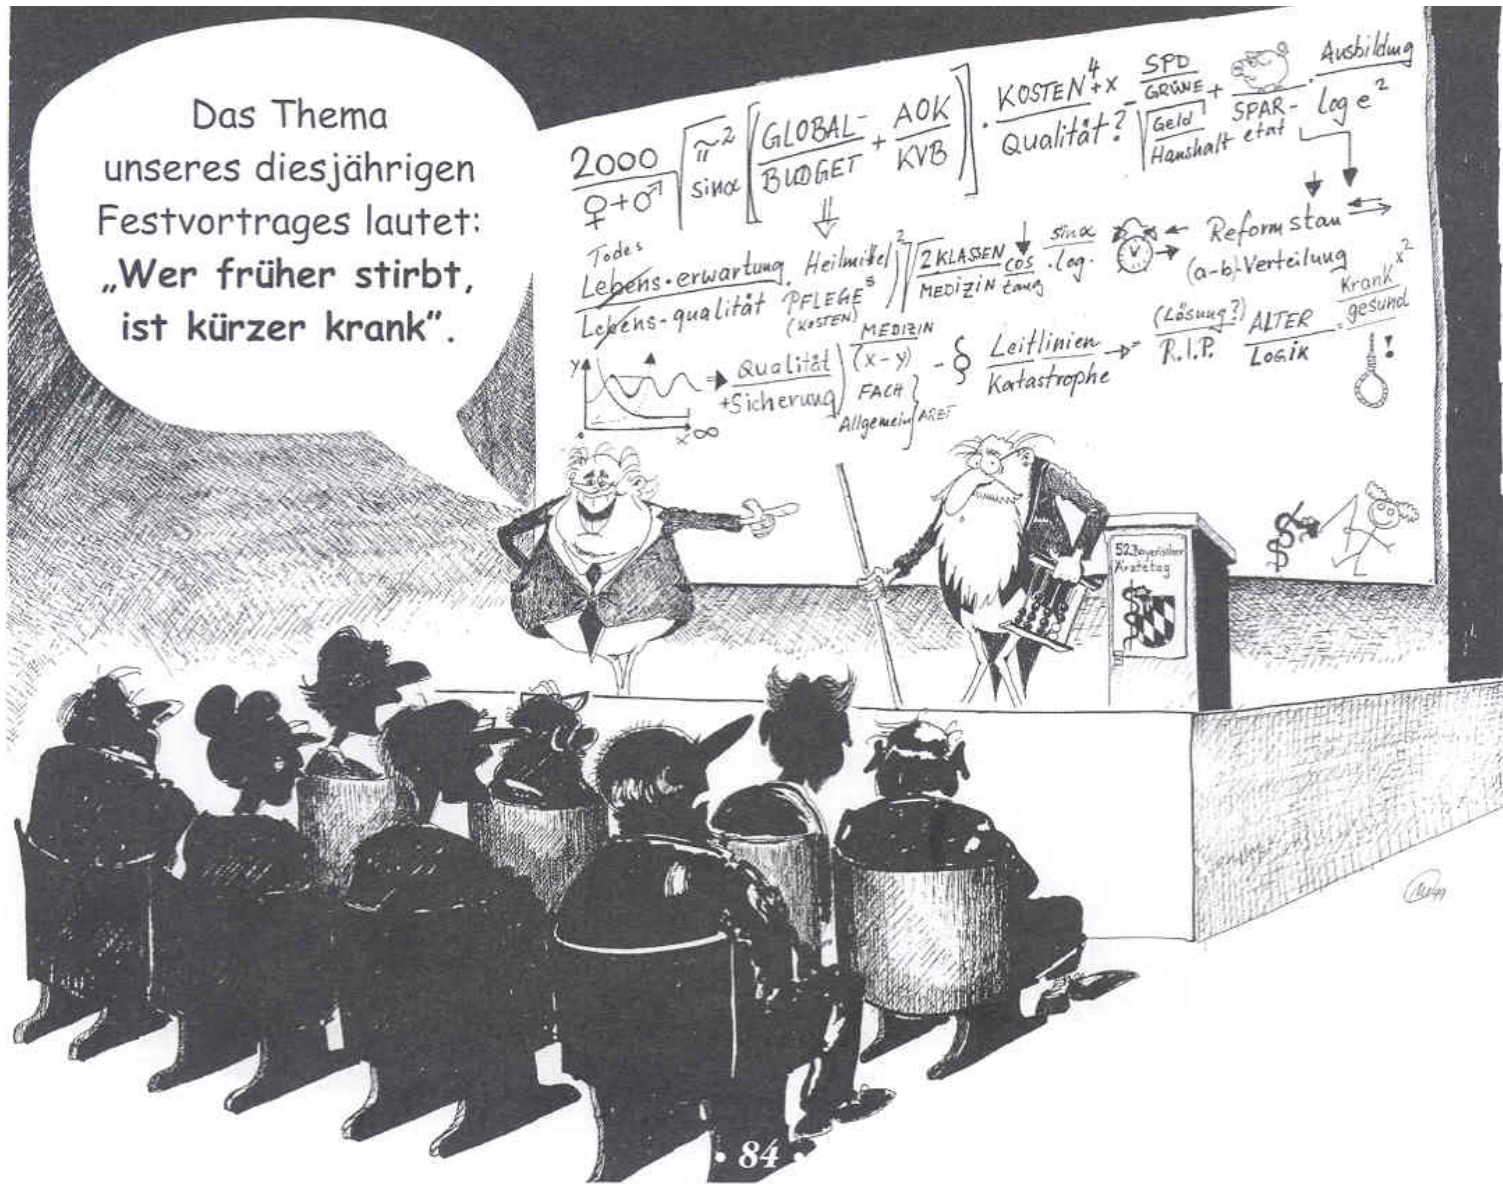 Das Thema
unseres diesjährigen
Festvortrages lautet:
„Wer früher stirbt,
ist kürzer krank".
2000
♀+♂
π²
sin α
GLOBAL-
BUDGET
+
AOK
KVB
·
KOSTEN⁴+x
Qualität?
-
SPD
GRÜNE
Geld
Haushalt
+
SPAR-
etat
·
Ausbildung
log e²
Todes
Lebens-erwartung
Lebens-qualität
·
Heilmittel²
PFLEGE
(KOSTEN)
2 KLASSEN
MEDIZIN
cos
tang
sin α
·log.
Reformstau
(a-b)-Verteilung
y
x ∞
Qualität
+Sicherung
MEDIZIN
(x-y)
FACH
Allgemein
ARZT
- §
Leitlinien
Katastrophe
(Lösung?)
R.I.P.
ALTER
LOGIK
Krank x²
gesund
!
52.Bayerischer
Ärztetag
99
· 84 ·